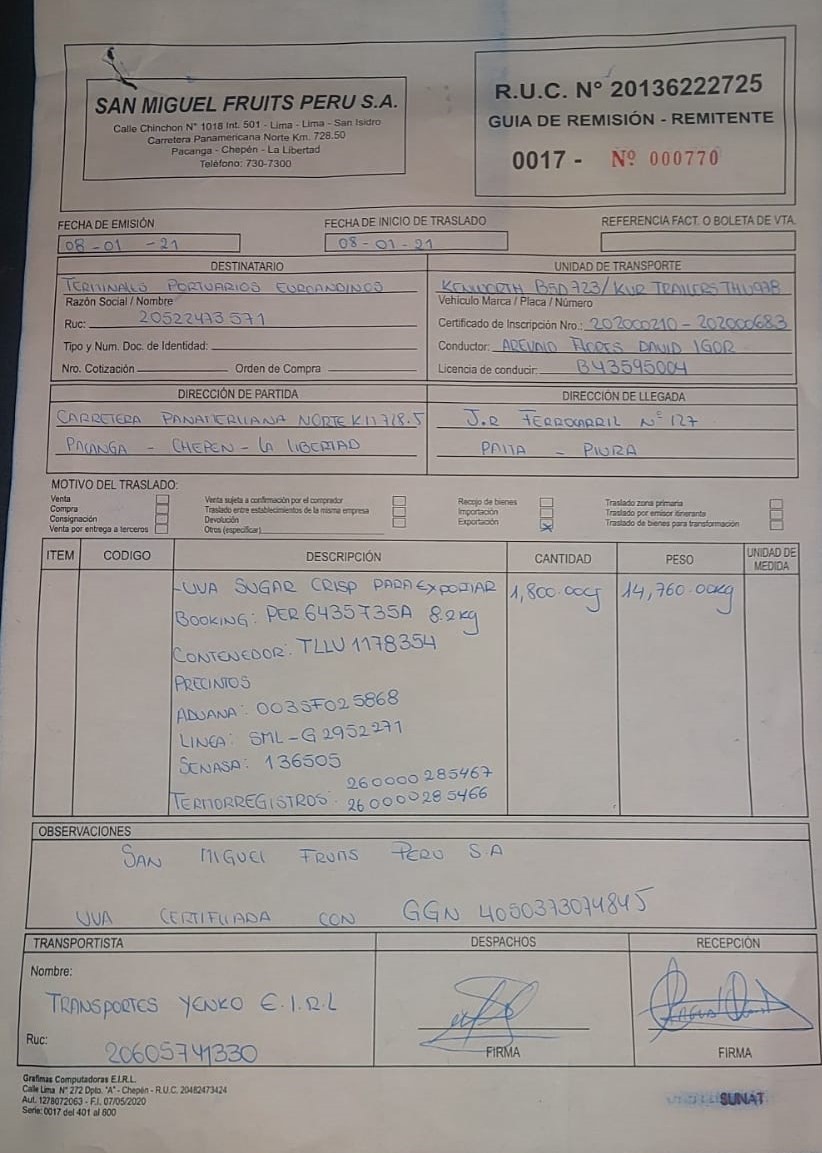 SAN MIGUEL FRUITS PERU S.A.
Calle Chinchon N° 1018 Int. 501 - Lima - Lima - San Isidro
Carretera Panamericana Norte Km. 728.50
Pacanga - Chepén - La Libertad
Teléfono: 730-7300
R.U.C. N° 20136222725
GUIA DE REMISIÓN - REMITENTE
0017 - Nº 000770
FECHA DE EMISIÓN
08-01-21
FECHA DE INICIO DE TRASLADO
08-01-21
REFERENCIA FACT. O BOLETA DE VTA.
DESTINATARIO
TERMINALES PORTUARIOS EUROANDINOS
Razón Social / Nombre
Ruc: 20522473571
Tipo y Num. Doc. de Identidad:
Nro. Cotización Orden de Compra
UNIDAD DE TRANSPORTE
KENWORTH B5D723/KUR TRAILERS THU978
Vehículo Marca / Placa / Número
Certificado de Inscripción Nro.: 202000210 - 202000683
Conductor: AREVALO FLORES DAVID IGOR
Licencia de conducir: B43595004
DIRECCIÓN DE PARTIDA
CARRETERA PANAMERICANA NORTE KM 728.5
PACANGA - CHEPEN - LA LIBERTAD
DIRECCIÓN DE LLEGADA
J.R FERROCARRIL N° 127
PAITA - PIURA
MOTIVO DEL TRASLADO:
Venta
Compra
Consignación
Venta por entrega a terceros
Venta sujeta a confirmación por el comprador
Traslado entre establecimientos de la misma empresa
Devolución
Otros (especificar)
Recojo de bienes
Importación
Exportación X
Traslado zona primaria
Traslado por emisor itinerante
Traslado de bienes para transformación
ITEM CODIGO DESCRIPCIÓN CANTIDAD PESO UNIDAD DE MEDIDA
-UVA SUGAR CRISP PARA EXPORTAR 1,800.00cj 14,760.00kg
BOOKING: PER6435735A 8.2kg
CONTENEDOR: TLLU 1178354
PRECINTOS
ADUANA: 0035F025868
LINEA: SML-G2952271
SENASA: 136505
260000285467
TERMORREGISTROS: 260000285466
OBSERVACIONES
SAN MIGUEL FRUITS PERU S.A
UVA CERTIFICADA CON GGN 4050373074845
TRANSPORTISTA
Nombre:
TRANSPORTES YENKO E.I.R.L
Ruc:
20605741330
DESPACHOS
FIRMA
RECEPCIÓN
FIRMA
Grafimas Computadoras E.I.R.L.
Calle Lima N° 272 Dpto. "A" - Chepén - R.U.C. 20482473424
Aut. 1278072063 - F.I. 07/05/2020
Serie: 0017 del 401 al 800
SUNAT